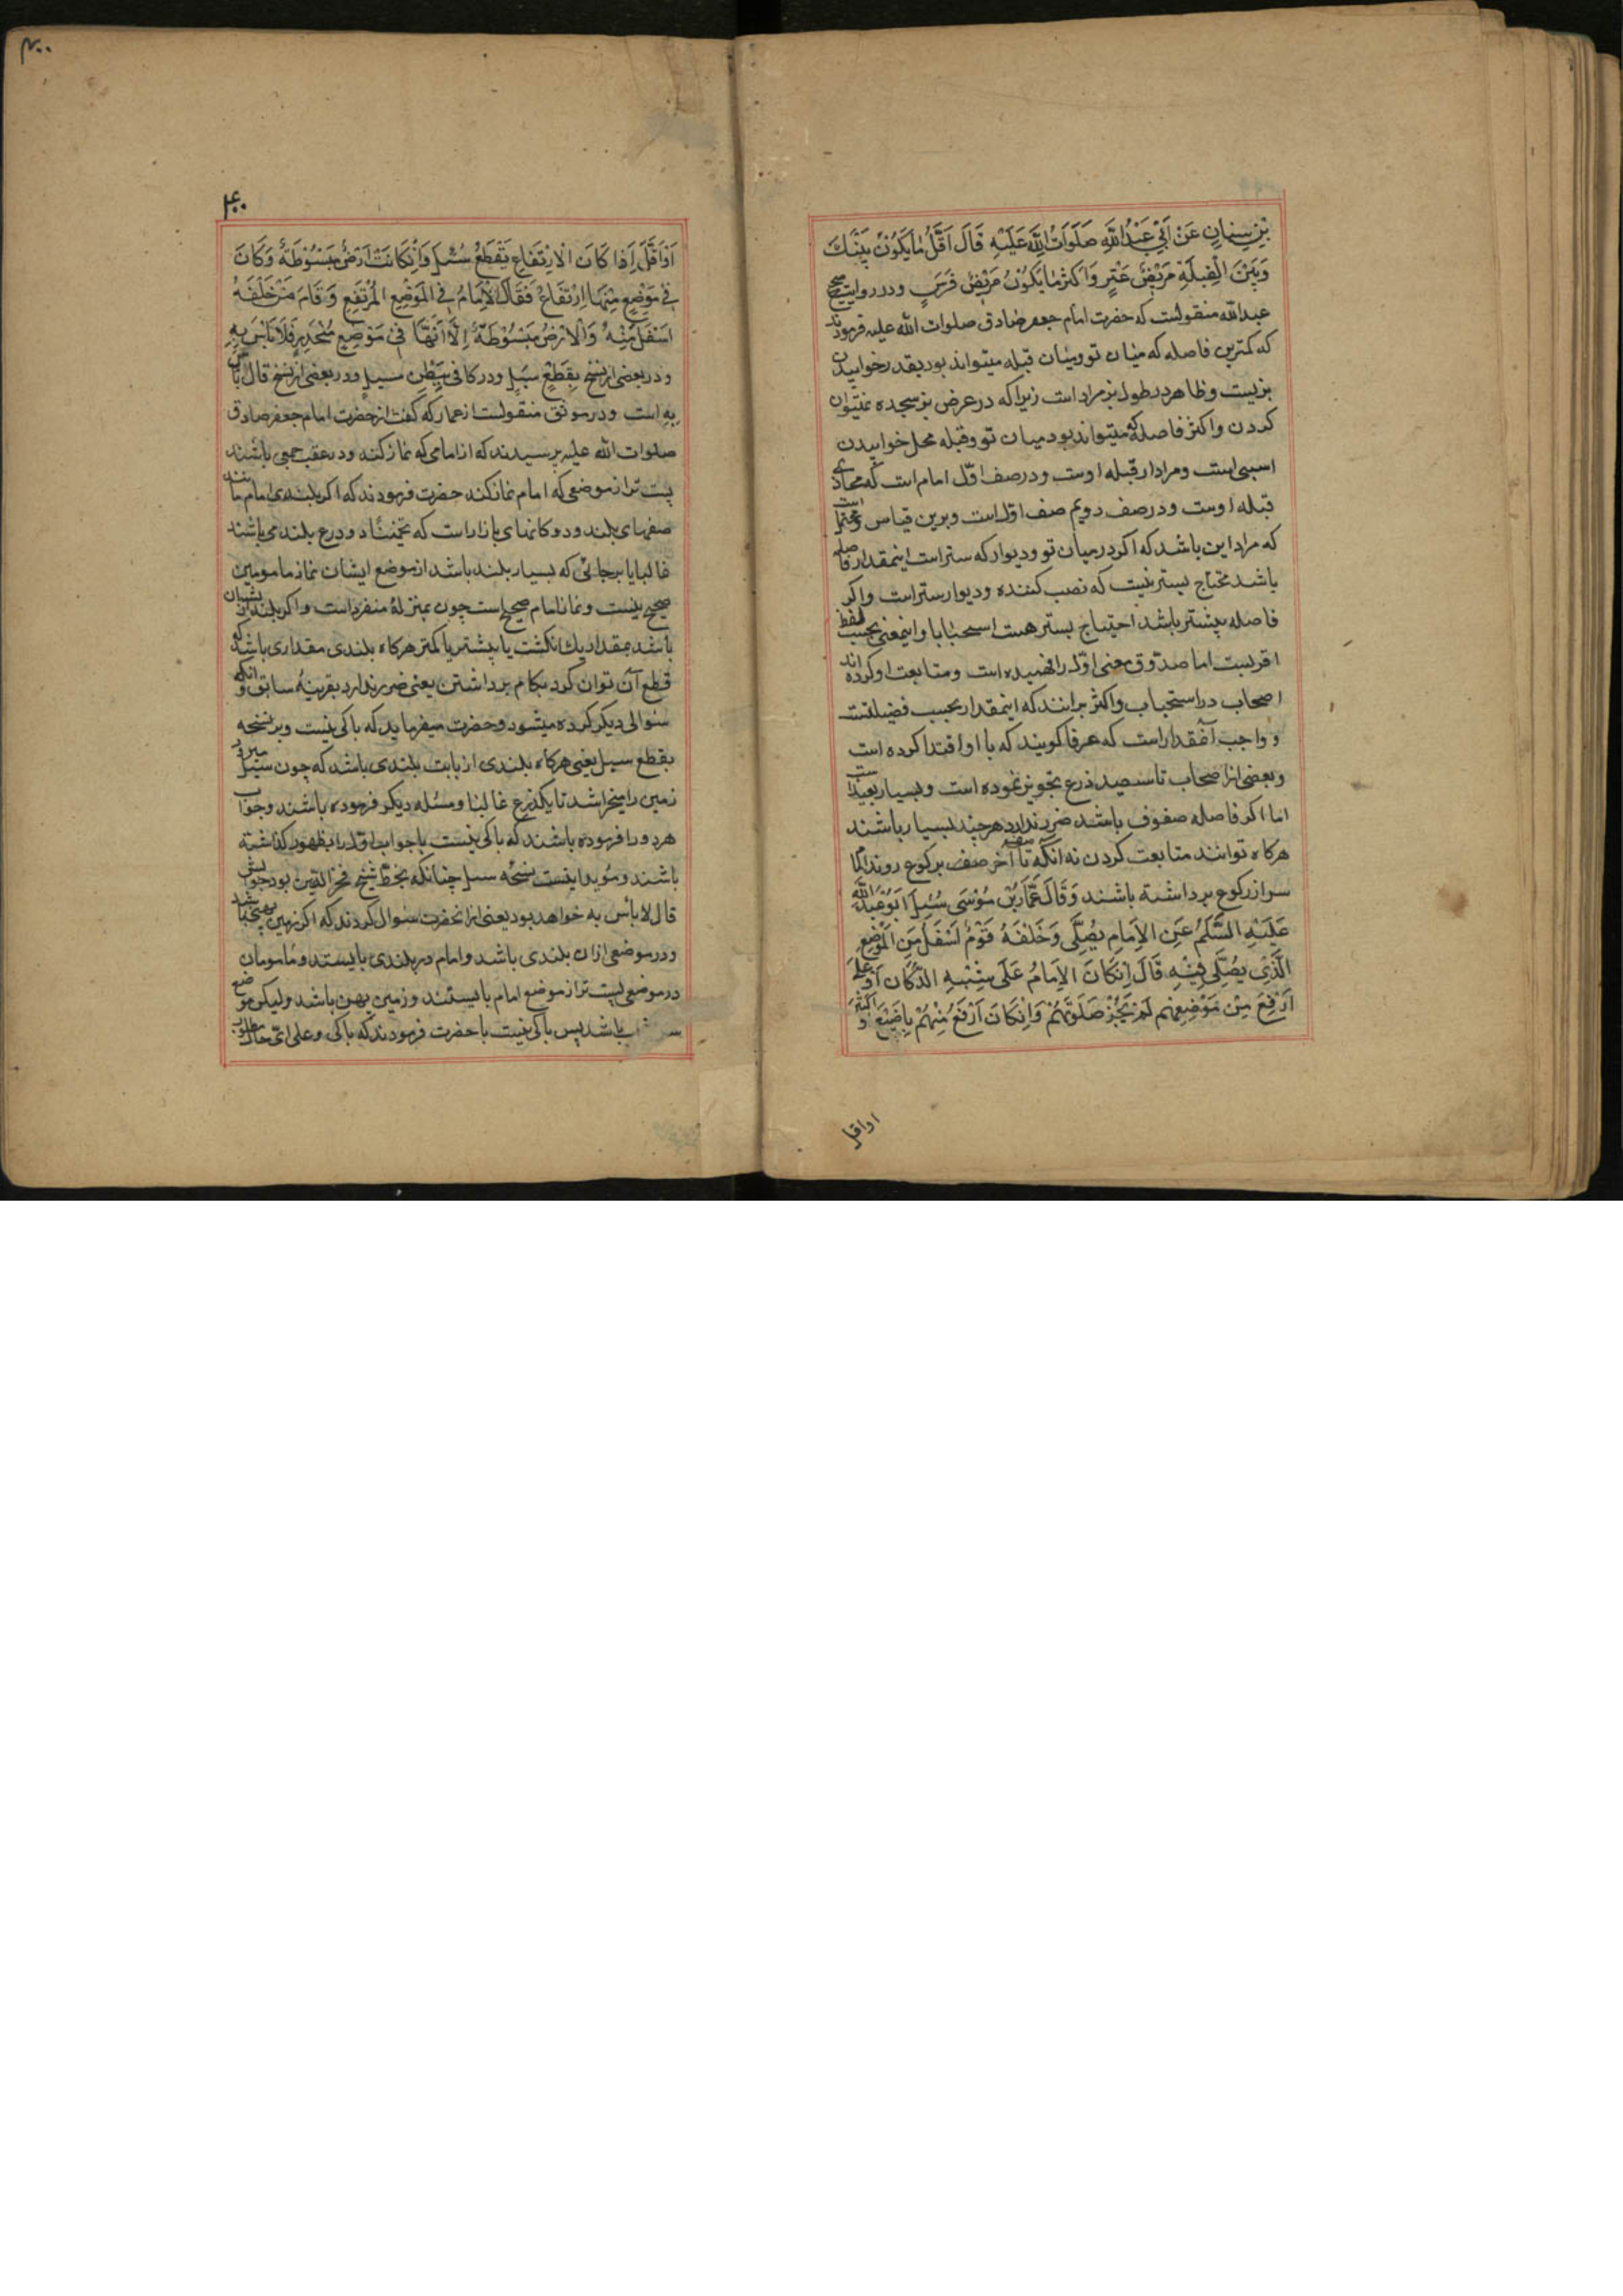 بْنِ سِنانٍ عَنْ اَبي عَبْدِ اللهِ صَلَوَاتُ اللهِ عَلَيْهِ قَالَ اَقَلُّ مٰا يَكُونُ بَيْنَكَ
وَبَيْنَ الْقِبْلَةِ مَرْبِضُ عَنْزٍ وَاَكثَرُ مٰا يَكُونُ مَرْبِضُ فَرَسٍ ودر روايت صحيح
عبدالله منقولست كه حضرت امام جعفر صادق صلوات الله عليه فرمودند
كه كمترين فاصله كه ميان تو وميان قبله ميتواند بود بقدر خوابيدن
بزيست وظاهر در طول بز مراد است زيرا كه در عرض بز سجده نميتوان
كردن واكثر فاصله كه ميتواند بود ميان تو وقبله محل خوابيدن
اسبي است ومراد از قبله اوست ودر صف اوّل امام است كه محاذي
قبله اوست ودر صف دويم صف اوّل است وبرين قياس ومحتمل است
كه مراد اين باشد كه اكر در ميان تو وديوار كه ستر است اينمقدار فاصله
باشد محتاج بستر نيست كه نصب كننده وديوار ستر است واكر
فاصله بيشتر باشد احتياج بستر هست استحبابا واينمعني بحسب لفظ
اقربست اما صدّوق معني اوّل را فهميده است ومتابعت او كرده اند
اصحاب در استحباب واكثر برانند كه اينمقدار بحسب فضيلتست
وواجب آنقدر است كه عرفا كويند كه با او اقتدا كرده است
وبعضي از اصحاب تا سيصد ذرع تجويز نموده است وبسيار بعيد است
اما اكر فاصله صفوف باشد ضرر ندارد هر چند بسيار باشند
هركاه توانند متابعت كردن نه انكه تا آخر صف بركوع روند امام
سر از ركوع برداشته باشند وَقَالَ عَمَّارُ بْنُ مُوْسَى سُئِلَ اَبُوْ عَبْدِ اللهِ
عَلَيْهِ السَّلَمُ عَنِ الاِمَامِ يُصَلّي وَخَلْفَهُ قَوْمٌ اَسْفَلَ مِنَ الْمَوْضِعِ
الَّذِي يُصَلّي فِيْهِ قَالَ اِنْ كَانَ الاِمَامُ عَلَى شِبْهِ الدُّكّانِ اَوْ عَلَى
اَرْفَعَ مِنْ مَوْضِعِهِم لَمْ تَجُزْ صَلَوتُهُمْ وَاِنْ كَانَ اَرْفَعَ مِنْهُمْ بِاِصْبَعٍ اَوْ اَكْثَرَ
اواقل
٤٠٠
اَوْ اَقَلَّ اِذا كَانَ الاِرْتِفَاعِ يَقْطَعُ سَيْلٍ وَاِنْ كَانَتْ اَرْضٌ مَبْسُوْطَةٌ وَكَانَ
في مَوْضِعٍ مِنْهَا اِرْتِفَاعٌ فَقَامَ الاِمَامُ فِي الْمَوْضِعِ الْمُرْتَفِعِ وَقَامَ مَنْ خَلْفَهُ
اَسْفَلَ مِنْهُ وَالاَرْضُ مَبْسُوْطَةٌ اِلَّا اَنَّهَا فِي مَوْضِعٍ مُنْحَدِرٍ فَلَا بَاْسَ بِهِ
ودر بعضي از نسخ بِقَطْعِ سَيْلٍ ودر كافي بِبَطْنِ مَسيلٍ ودر بعضي از نسخ قال لا باس
بِهِ است ودر موثق منقولست از عمار كه كفت از حضرت امام جعفر صادق
صلوات الله عليه پرسيدند كه از امامي كه نماز كند ودر عقب جمعي باشند
پست تر از موضعي كه امام نماز كند حضرت فرمودند كه اكر بلندي امام مانند
صفهاي بلند ودوكانهاي بازار است كه تخمينًا دو ذرع بلند مي باشند
غالبا يا بر جائي كه بسيار بلند باشد از موضع ايشان نماز مامومين
صحيح نيست ونماز امام صحيح است چون بمنزلهٔ منفرد است واكر بلندتر از ايشان
باشد بمقدار يك انكشت يا بيشتر يا كمتر هركاه بلندي مقداري باشد كه
قطع آن توان كرد بكام برداشتن يعني ضرر ندارد بقرينهٔ سابق وانكه
سؤالي ديكر كرده ميشود وحضرت ميفرمايد كه باكي نيست وبر نسخه
بقطع سيل يعني هركاه بلندي از بابت بلندي باشد كه چون سيل ميرود
زمين را ميخراشد تا يكذرع غالبا ومسئله ديكر فرموده باشند وجواب
هر دو را فرموده باشند كه باكي نيست يا جواب اوّل را بظهور كذاشته
باشند ومؤيد اينست نسخه سيل چنانكه بخط شيخ فخر الدّين بود جوابش
قال لا بأس به خواهد بود يعني از انحضرت سؤال كردند كه اكر زمين پهن باشد
ودر موضعي ازان بلندي باشد وامام در بلندي بايستد ومأمومان
در موضعي پست تر از موضع امام بايستند وزمين پهن باشد وليكن موضع
باشد پس باكي نيست يا حضرت فرمودند كه باكي وعلى ايّ حال